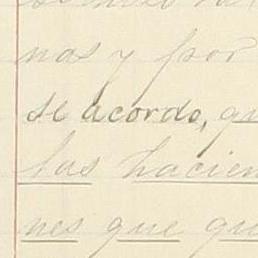 nas y por
se acordo, qu
las hacien
nes que qu